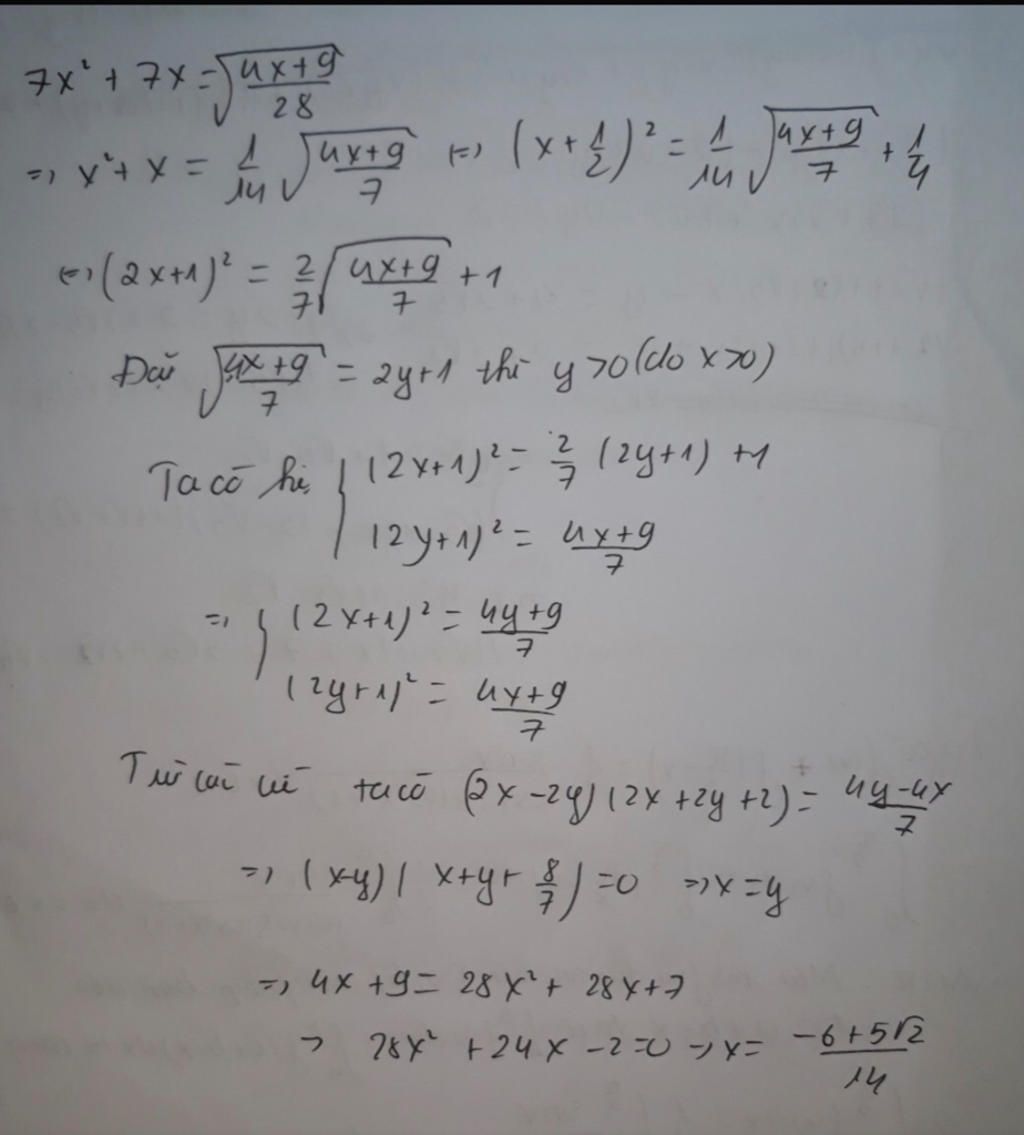 7x² + 7x = √((4x+9)/28)
=> x² + x = 1/14 √((4x+9)/7) <=> (x + 1/2)² = 1/14 √((4x+9)/7) + 1/4
<=> (2x+1)² = 2/7 √((4x+9)/7) + 1
Đặt √((4x+9)/7) = 2y+1 thì y>0 (do x>0)
Ta có hệ { (2x+1)² = 2/7 (2y+1) + 1
(2y+1)² = (4x+9)/7
=> { (2x+1)² = (4y+9)/7
(2y+1)² = (4x+9)/7
Trừ ta có (2x-2y)(2x+2y+2) = (4y-4x)/7
=> (x-y)(x+y+8/7) = 0 => x=y
=> 4x+9 = 28x² + 28x + 7
→ 28x² + 24x - 2 = 0 → x = (-6+5√2)/14